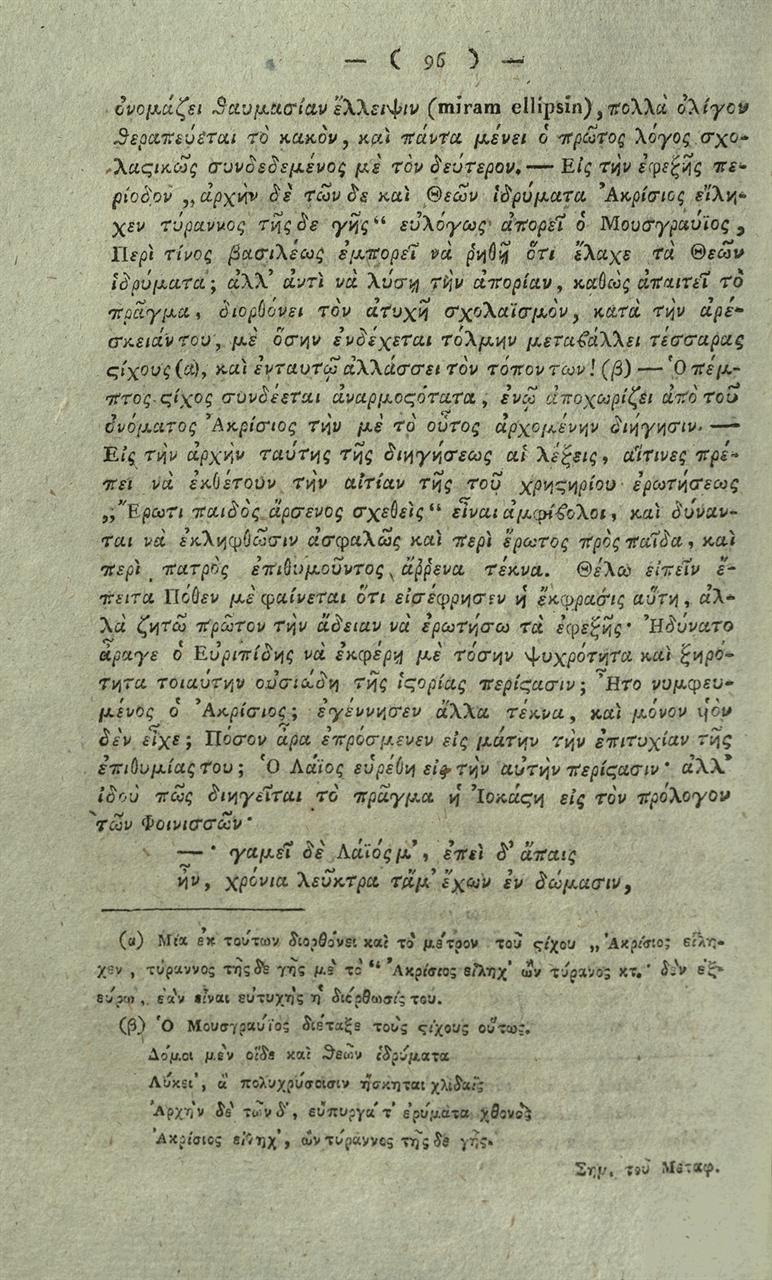 — ( 96 ) —
ὀνομάζει θαυμασίαν ἔλλειψιν (miram ellipsin), πολλὰ ὀλίγον
θεραπεύεται τὸ κακὸν, καὶ πάντα μένει ὁ πρῶτος λόγος σχο-
λαϛικῶς συνδεδεμένος μὲ τὸν δεύτερον. — Εἰς τὴν ἐφεξῆς πε-
ρίοδον „ἀρχὴν δὲ τῶν δε καὶ Θεῶν ἱδρύματα Ἀκρίσιος εἴλη-
χεν τύραννος τῆς δε γῆς“ εὐλόγως ἀπορεῖ ὁ Μουσγραύϊος,
Περὶ τίνος βασιλέως ἐμπορεῖ νὰ ῥηθῇ ὅτι ἔλαχε τὰ Θεῶν
ἱδρύματα; ἀλλ' ἀντὶ νὰ λύσῃ τὴν ἀπορίαν, καθὼς ἀπαιτεῖ τὸ
πρᾶγμα, διορθόνει τὸν ἀτυχῆ σχολαϊσμὸν, κατὰ τὴν ἀρέ-
σκειάν του, μὲ ὅσην ἐνδέχεται τόλμην μεταβάλλει τέσσαρας
ϛίχους (α), καὶ ἐνταυτῷ ἀλλάσσει τὸν τόπον των! (β) — Ὁ πέμ-
πτος ϛίχος συνδέεται ἀναρμοϛότατα, ἐνῷ ἀποχωρίζει ἀπὸ τοῦ
ὀνόματος Ἀκρίσιος τὴν μὲ τὸ οὗτος ἀρχομένην διήγησιν. —
Εἰς τὴν ἀρχὴν ταύτης τῆς διηγήσεως αἱ λέξεις, αἵτινες πρέ-
πει νὰ ἐκθέτουν τὴν αἰτίαν τῆς τοῦ χρηϛηρίου ἐρωτήσεως
„Ἔρωτι παιδὸς ἄρσενος σχεθεὶς“ εἶναι ἀμφίβολοι, καὶ δύναν-
ται νὰ ἐκληφθῶσιν ἀσφαλῶς καὶ περὶ ἔρωτος πρὸς παῖδα, καὶ
περὶ πατρὸς ἐπιθυμοῦντος ἄῤῥενα τέκνα. Θέλω εἰπεῖν ἔ-
πειτα Πόθεν μὲ φαίνεται ὅτι εἰσέφρησεν ἡ ἔκφρασις αὕτη, ἀλ-
λὰ ζητῶ πρῶτον τὴν ἄδειαν νὰ ἐρωτήσω τὰ ἐφεξῆς· Ἠδύνατο
ἆραγε ὁ Εὐριπίδης νὰ ἐκφέρῃ μὲ τόσην ψυχρότητα καὶ ξηρό-
τητα τοιαύτην οὐσιώδη τῆς ἱϛορίας περίϛασιν; Ἦτο νυμφευ-
μένος ὁ Ἀκρίσιος; ἐγέννησεν ἄλλα τέκνα, καὶ μόνον υἱὸν
δὲν εἶχε; Πόσον ἆρα ἐπρόσμενεν εἰς μάτην τὴν ἐπιτυχίαν τῆς
ἐπιθυμίας του; Ὁ Λάϊος εὑρέθη εἰς τὴν αὐτὴν περίϛασιν· ἀλλ'
ἰδοὺ πῶς διηγεῖται τὸ πρᾶγμα ἡ Ἰοκάϛη εἰς τὸν πρόλογον
τῶν Φοινισσῶν·
— · γαμεῖ δὲ Λάϊός μ', ἐπεὶ δ' ἄπαις
ἦν, χρόνια λεῦκτρα τἄμ' ἔχων ἐν δώμασιν,
(α) Μία ἐκ τούτων διορθόνει καὶ τὸ μέτρον τοῦ ϛίχου „Ἀκρίσιος εἴλη-
χεν, τύραννος τῆς δε γῆς μὲ τὸ “Ἀκρίσιος εἴληχ' ὢν τύρανος κτ. · δὲν ἐξ-
εύρω, ἐὰν εἶναι εὐτυχὴς ἡ διόρθωσίς του.
(β) Ὁ Μουσγραύϊος διέταξε τοὺς ϛίχους οὕτως.
Δόμοι μὲν οἵδε καὶ θεῶν ἱδρύματα
Λύκει', ἃ πολυχρύσοισιν ἤσκηται χλιδαῖς
Ἀρχὴν δὲ τῶν δ', εὔπυργά τ' ἐρύματα χθονὸς
Ἀκρίσιος εἴληχ', ὢν τύραννος τῆς δε γῆς.
Σημ. τοῦ Μεταφ.